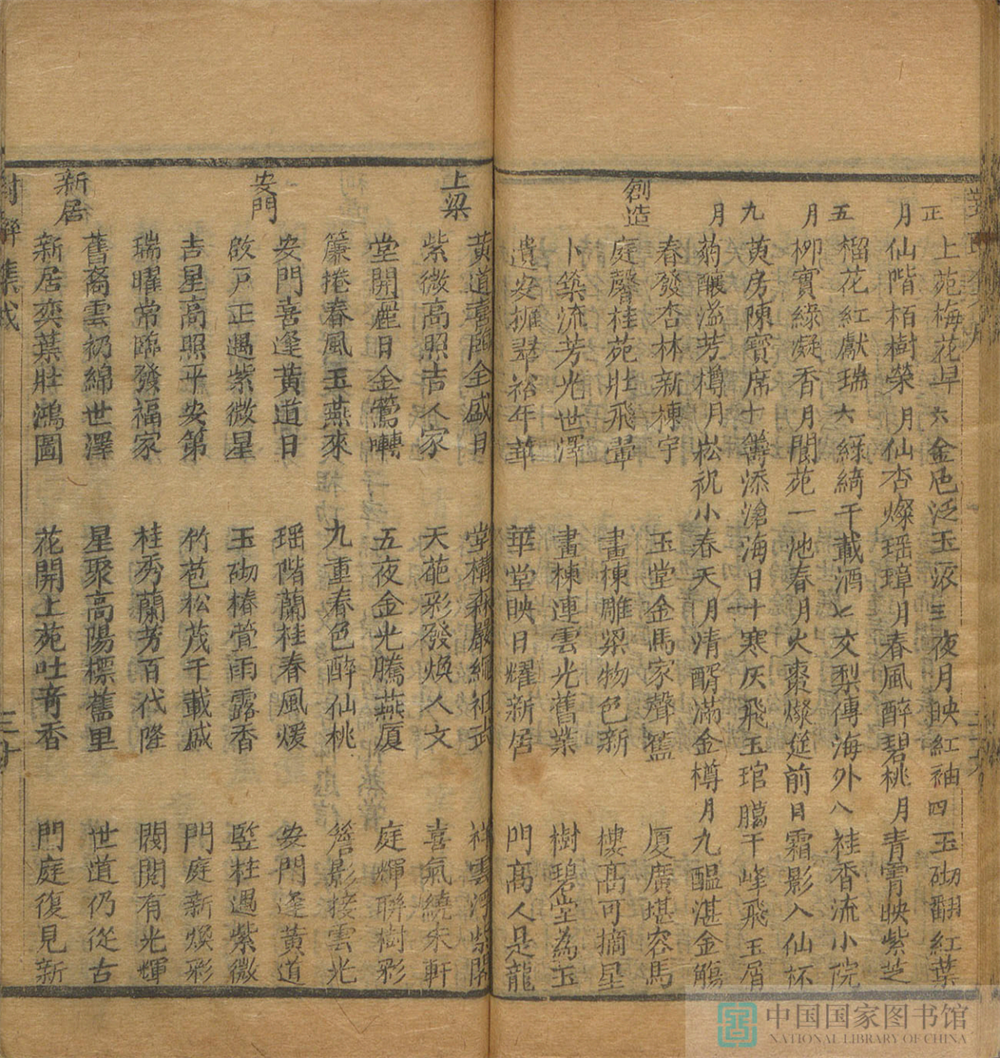 正 上苑梅花早 六 金卮泛玉波 三 夜月映紅袖 四 玉砌翻紅葉
月 仙階栢樹榮 月 仙杏燦瑶璋 月 春風醉碧桃 月 青霄映紫芝
五 榴花紅獻瑞 六 綠綺千載酒 七 交梨傳海外 八 桂香流小院
月 柳實綠凝香 月 閬苑一池春 月 火棗燦筵前 日 霜影入仙杯
九 萸房陳寶席 十 籌添滄海日 十 寒灰飛玉琯 臘 千峰飛玉屑
月 菊釀溢芳樽 月 崧祝小春天 月 清醑滿金樽 月 九醞湛金觴
創造
春發杏林新棟宇 玉堂金馬家聲舊 厦廣堪容馬
庭馨桂苑壯飛翬 畫棟雕梁物色新 樓高可摘星
卜築流芳光世澤 畫棟連雲光舊業 樹碧堂為玉
遺安擁翠裕年華 華堂映日耀新居 門高人是龍
上梁
黃道喜開全盛月 堂構森嚴繩祖武 祥雲浮紫閣
紫微高照吉人家 天葩彩發煥人文 喜氣繞朱軒
堂開麗日金鶯囀 五夜金光騰燕厦 庭輝聯樹彩
簾捲春風玉燕來 九重春色醉仙桃 簷影接雲光
安門
安門喜逢黃道日 瑶階蘭桂春風煖 安門逢黃道
啟戶正遇紫微星 玉砌椿萱雨露香 竪柱遇紫微
吉星高照平安第 竹苞松茂千載盛 門庭新煥彩
瑞曜常臨發福家 桂秀蘭芳百代隆 閥閱有光輝
新居
舊裔雲礽綿世澤 星聚高陽標舊里 世道仍從古
新居奕葉壯鴻圖 花開上苑吐奇香 門庭復見新